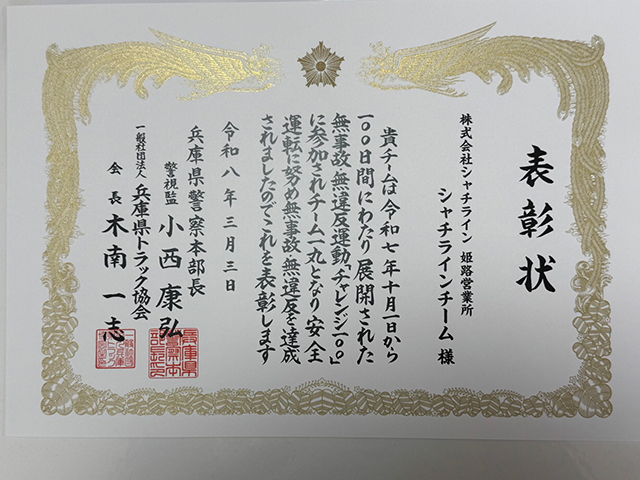 表彰状
株式会社シャチライン 姫路営業所
シャチラインチーム 様
貴チームは令和七年十月一日から
一〇〇日間にわたり展開された
無事故・無違反運動「チャレンジ一〇〇」
に参加されチーム一丸となり安全
運転に努め無事故・無違反を達成
されましたのでこれを表彰します
令和八年三月三日
兵庫県警察本部長
警視監 小西康弘
一般社団法人 兵庫県トラック協会
会長 木南一志
兵庫県
警察本
部長之